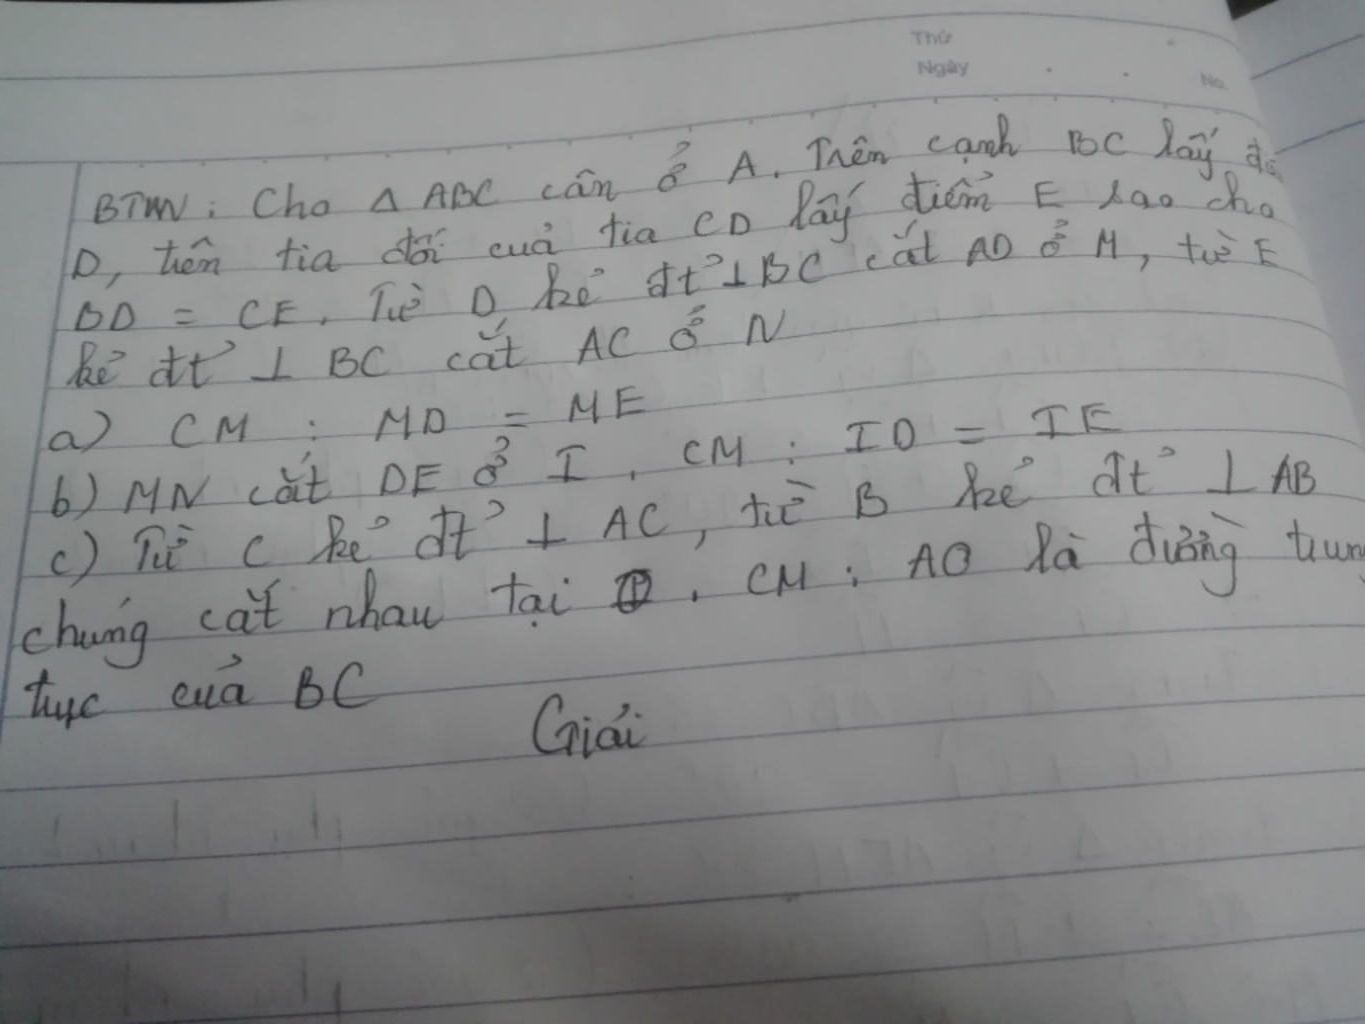 Thứ
Ngày
No.
BTVN: Cho Δ ABC cân ở A. Trên cạnh BC lấy
D, trên tia đối cuả tia CD lấy điểm E sao cho
BD = CE. Từ D kẻ đt ⊥ BC cắt AD ở M, từ E
kẻ đt ⊥ BC cắt AC ở N
a) CM : MD = ME
b) MN cắt DE ở I. CM : ID = IE
c) Từ C kẻ đt ⊥ AC, từ B kẻ đt ⊥ AB
chúng cắt nhau tại O. CM : AO là đường trung
trục cuả BC
Giải